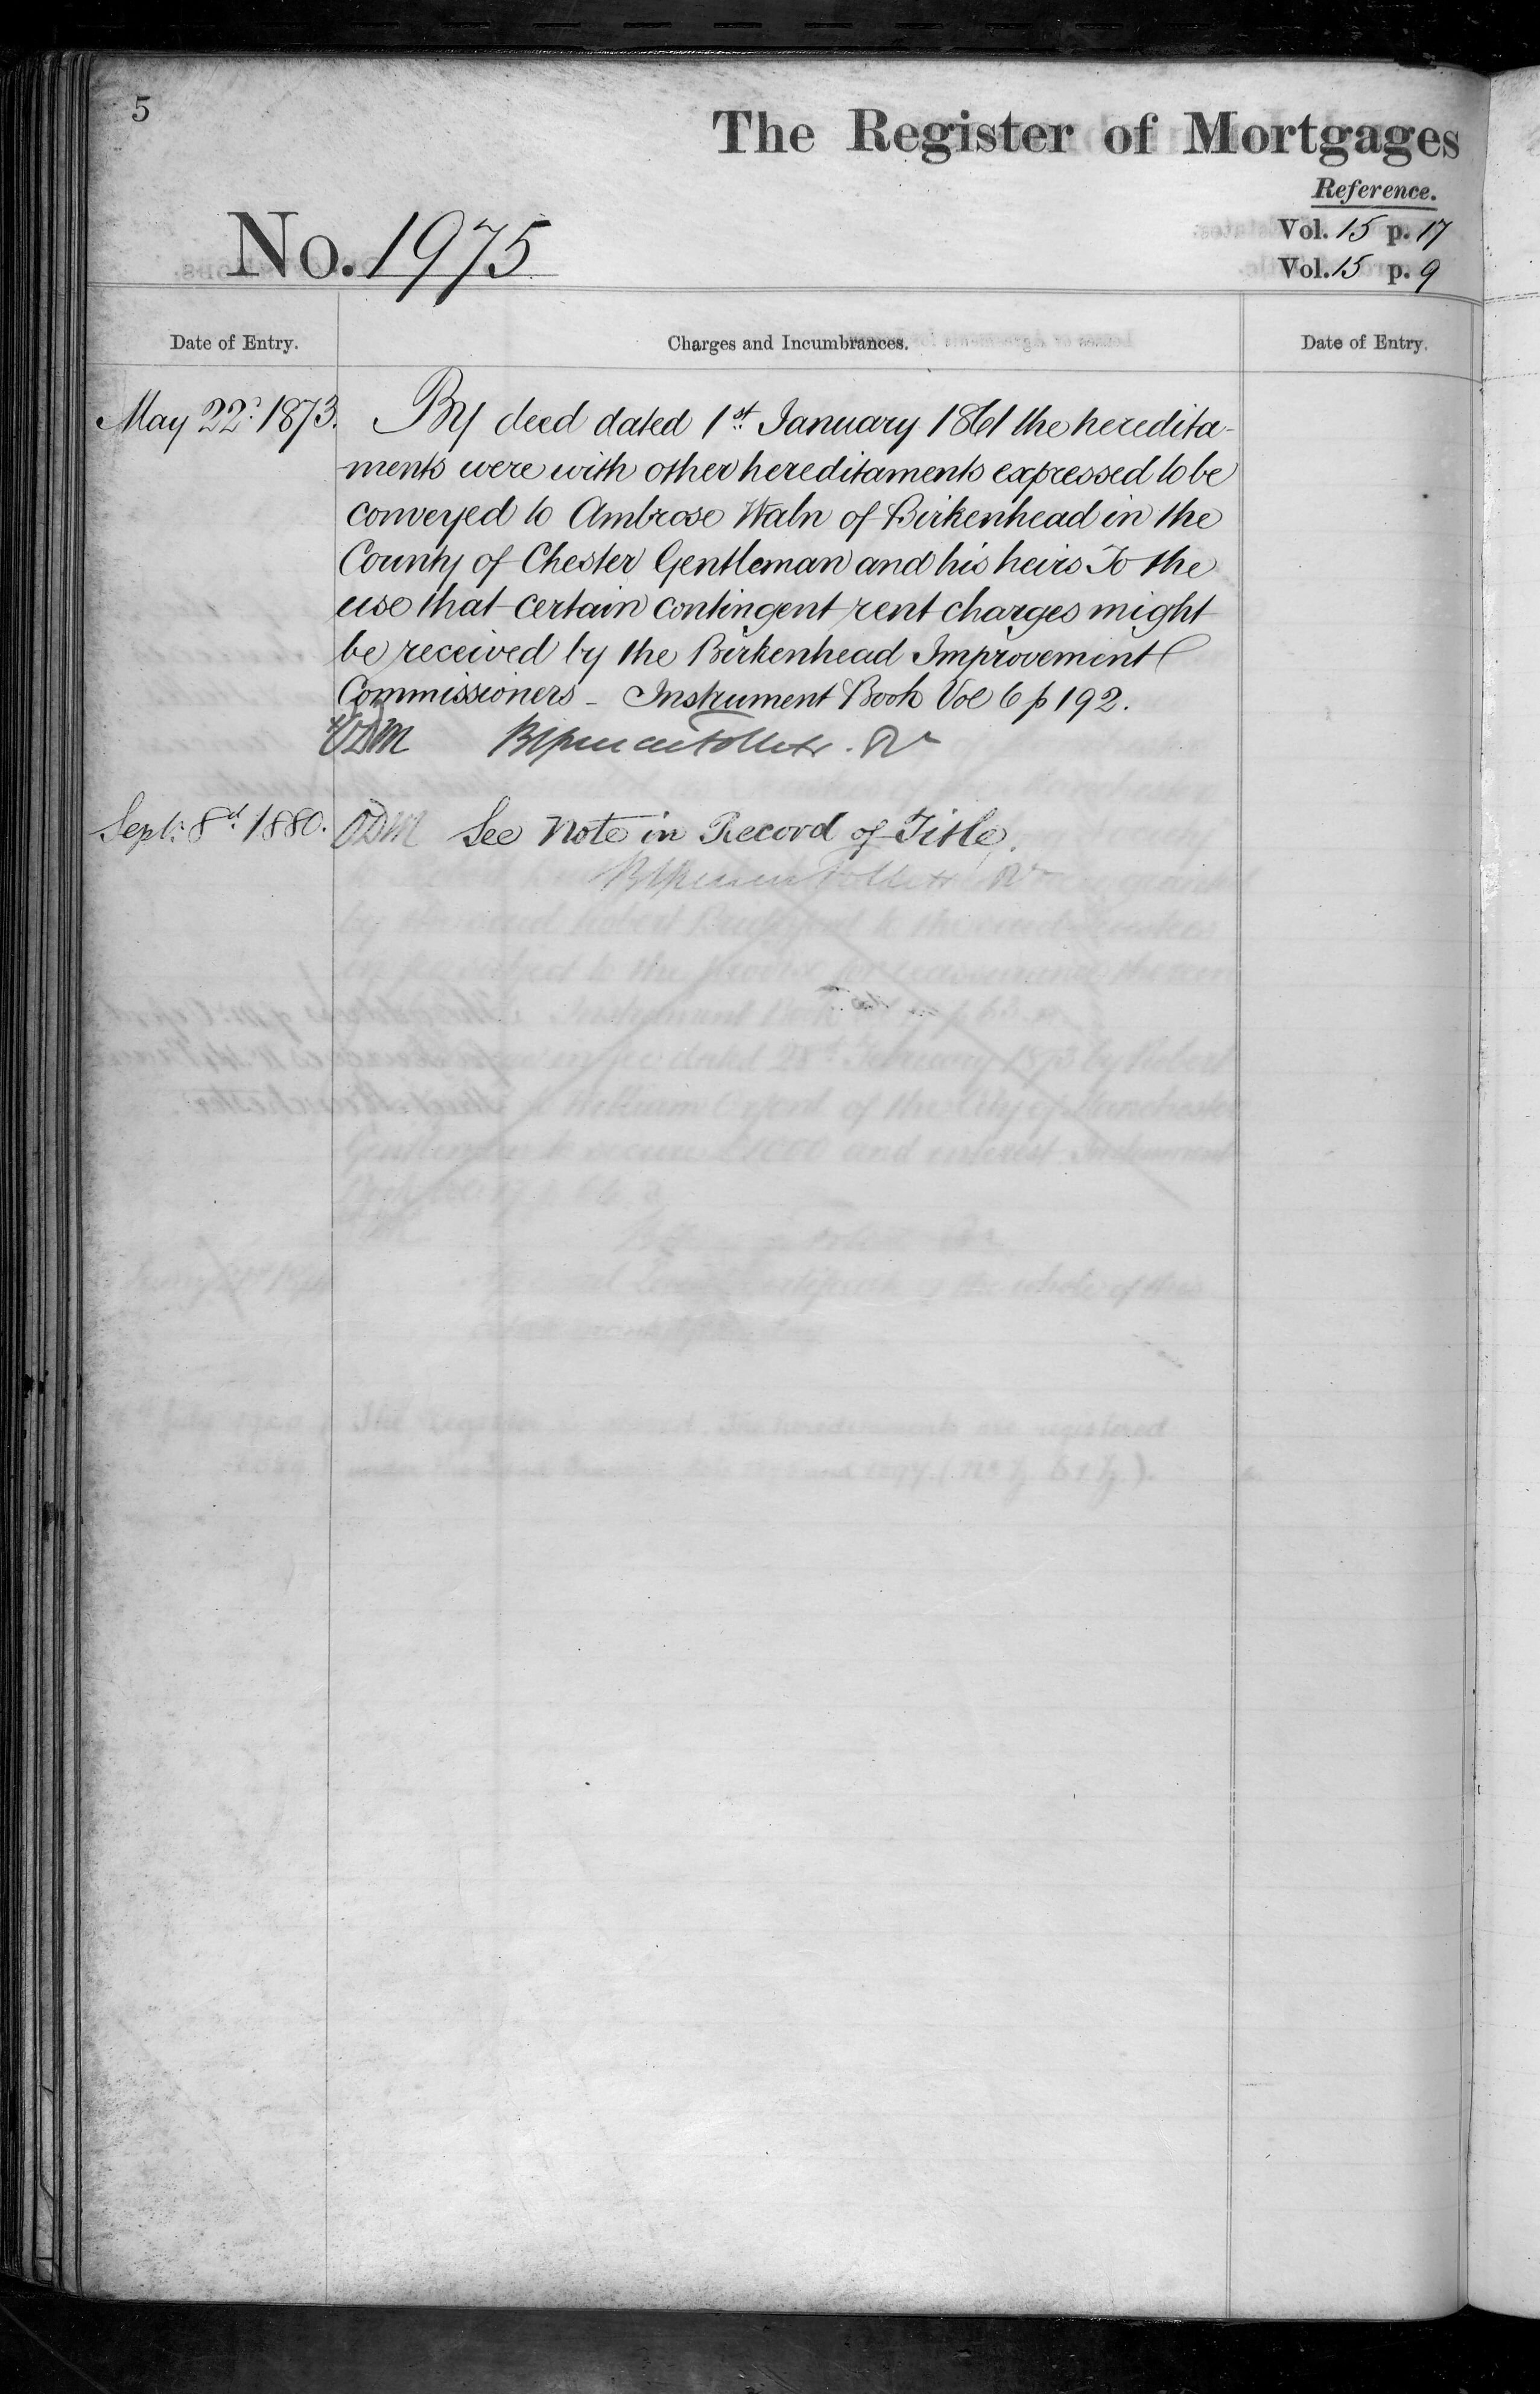 5
The Register of Mortgages
Reference.
No. 1975
Vol. 15 p. 17
Vol. 15 p. 9
Date of Entry.
Charges and Incumbrances.
Date of Entry.
May 22d. 1873.
By deed dated 1st. January 1861 the heredita-
ments were with other hereditaments expressed to be
conveyed to Ambrose Waln of Birkenhead in the
County of Chester Gentleman and his heirs To the
use that certain contingent rent charges might
be received by the Birkenhead Improvement
Commissioners – Instrument Book Vol 6 p 192.
Sept. 8d. 1880.
See Note in Record of Title.